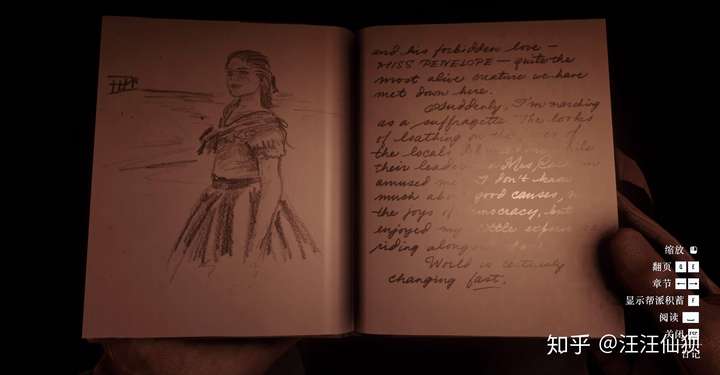 and his forbidden love —
MISS PENELOPE — quite the
most alive creature we have
met down here.
Suddenly, I'm marching
as a suffragette. The looks
of loathing on the of
the locals
their leader Mrs
amused me I don't know
much good causes,
the joys of democracy, but
enjoyed my little
riding along
World is certainly
changing fast.
缩放
翻页 Q E
章节 ← →
显示帮派积蓄 F
阅读
关闭
日记
知乎 @汪汪仙贝